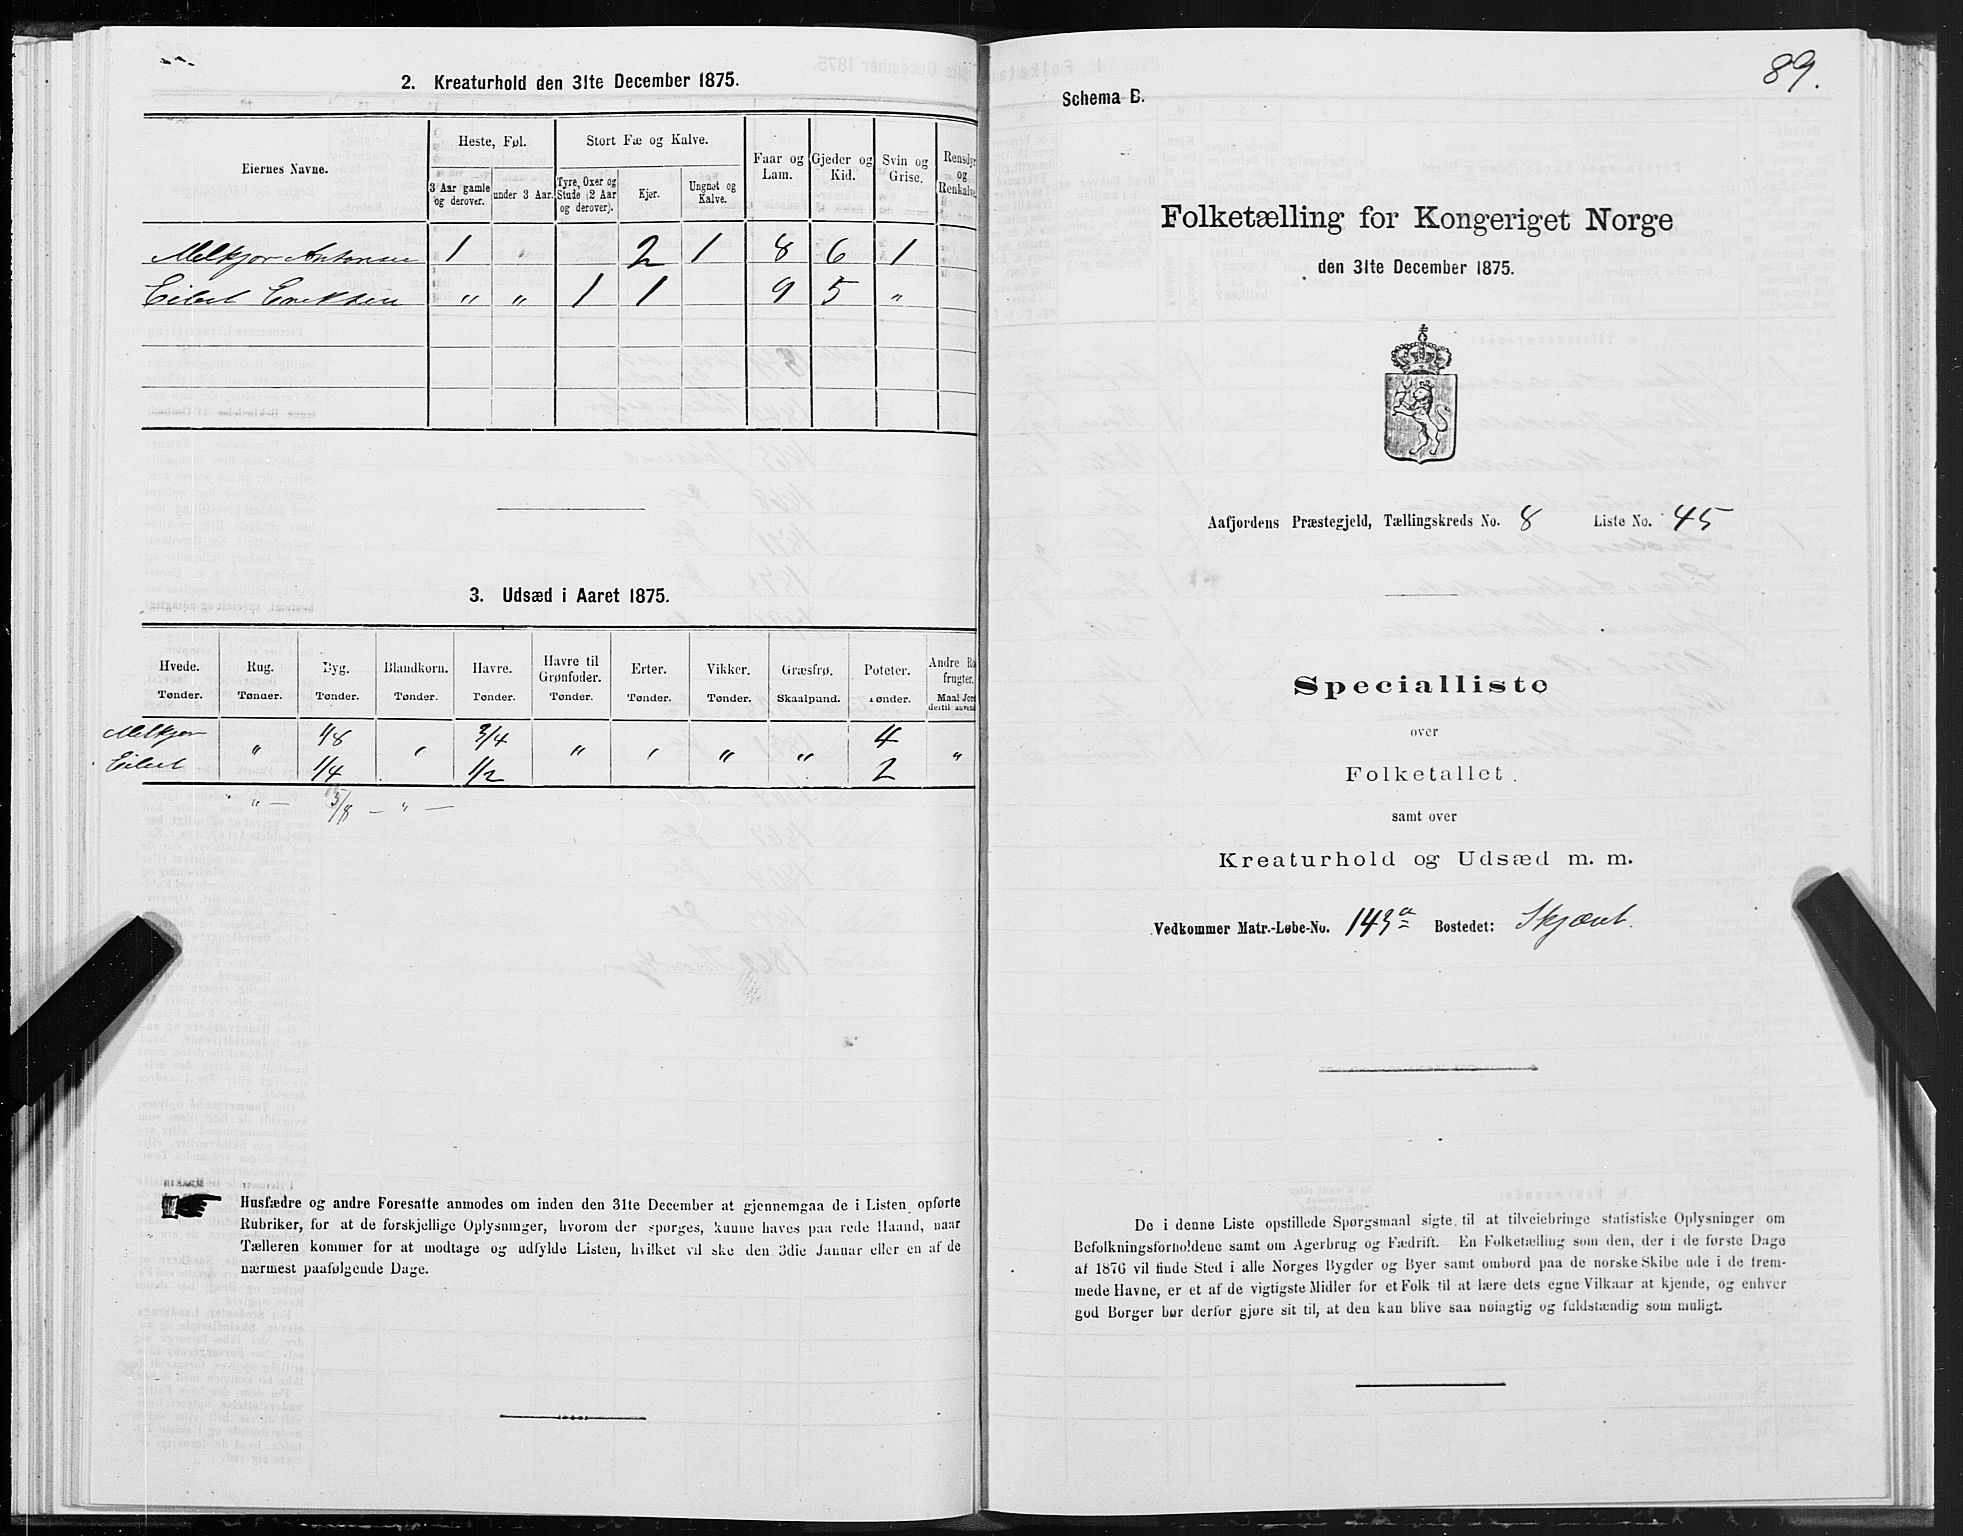 2. Kreaturhold den 31te December 1875.
Eiernes Navne.
Heste, Føl.
Stort Fæ og Kalve.
Faar og Lam.
Gjeder og Kid.
Svin og Grise.
Rensdyr og Renkalve.
3 Aar gamle og derover.
under 3 Aar.
Tyre, Oxer og Stude (2 Aar og derover).
Kjør.
Ungnøt og Kalve.
Melkjor Antonsen 1 " 2 1 8 6 1
Eilert Eriksen " " 1 1 9 5 "
3. Udsæd i Aaret 1875.
Hvede. Rug. Byg. Blandkorn. Havre. Havre til Grønfoder. Erter. Vikker. Græsfrø. Poteter. Andre Ro frugter.
Tønder. Tønder. Tønder. Tønder. Tønder. Tønder. Tønder. Tønder. Skaalpund. Tønder. Maal Jord dertil anvend
Melkjor " 1/8 " 3/4 " " " " 4 "
Eilert 1/4 1/2 2
" — 3/8 — " —
Husfædre og andre Foresatte anmodes om inden den 31te December at gjennemgaa de i Listen opførte
Rubriker, for at de forskjellige Oplysninger, hvorom der spørges, kunne haves paa rede Haand, naar
Tælleren kommer for at modtage og udfylde Listen, hvilket vil ske den 3die Januar eller en af de
nærmest paafølgende Dage.
89.
Schema B.
Folketælling for Kongeriget Norge
den 31te December 1875.
Aafjordens Præstegjeld, Tællingskreds No. 8 Liste No. 45
Specialliste
over
Folketallet
samt over
Kreaturhold og Udsæd m. m.
Vedkommer Matr.-Løbe-No. 143a Bostedet: Skjært.
De i denne Liste opstillede Spørgsmaal sigte til at tilveiebringe statistiske Oplysninger om
Befolkningsforholdene samt om Agerbrug og Fædrift. En Folketælling som den, der i de første Dage
af 1876 vil finde Sted i alle Norges Bygder og Byer samt ombord paa de norske Skibe ude i de frem-
mede Havne, er et af de vigtigste Midler for et Folk til at lære dets egne Vilkaar at kjende, og enhver
god Borger bør derfor gjøre sit til, at den kan blive saa nøiagtig og fuldstændig som muligt.